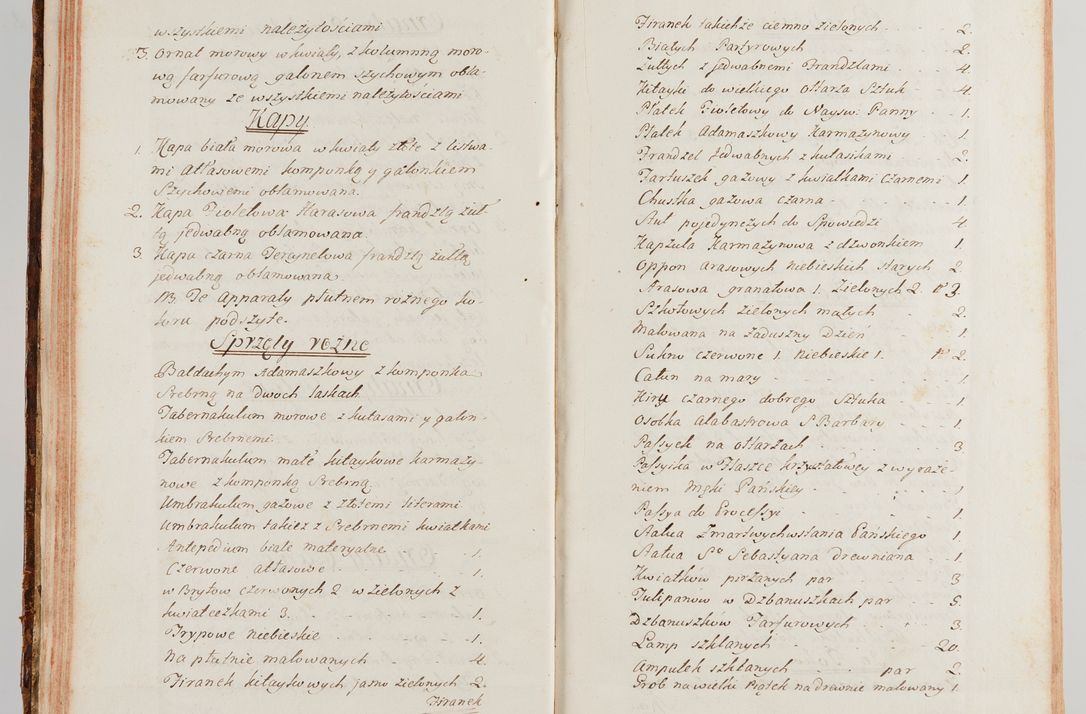 wszystkiemi należytościami
3. Ornat morowy w kwiaty, z kolumnną moro-
wą farfurową galonem szychowym obla-
mowany ze wszystkiemi należytościami
Kapy
1. Kapa biała morowa w kwiaty złote z listwa-
mi Atłasowemi komponką y galonkiem
Szychowemi oblamowana.
2. Kapa Fioletowa Harasowa frandzlą żuł-
tą jedwabną oblamowana.
3. Kapa czarna Tercynelowa frandzlą żułtą
jedwabną oblamowana
NB. Te Apparaty płutnem rożnego ko-
loru podszyte.
Sprzęty rożne
Baldachym Adamaszkowy z komponką
Srebrną na dwoch laskach
Tabernakulum morowe z kutasami y galon-
kiem Srebrnemi.
Tabernakulum małe kitaykowe karmazy-
nowe z komponką Srebrną
Umbrakulum gazowe z złotemi literami
Umbrakulum takież z Srebrnemi kwiatkami
Antepedium białe materyalne 1.
Czerwone atłasowe 1.
w Brytow czerwonych 2 w zielonych z
kwiateczkami 3. 1.
Trypowe niebieskie 1.
Na płutnie malowanych 4.
Firanek kitaykowych jasno zielonych 2.
Firanek
Firanek takichże ciemno zielonych 2.
Białych Partyrowych 2.
Żułtych z jedwabnemi Frandzlami 4.
Kitayki do wielkiego Ołtarza Sztuk 4.
Płatek Fioletowy do Nayśw: Panny 1.
Płatek Adamaszkowy Karmazynowy 1.
Frandzel Jedwabnych z kutasikami 2.
Fartuszek gazowy z kwiatkami czarnemi 1.
Chustka gazowa czarna 1.
Stuł pojedynczych do Spowiedzi 4.
Kapzula Karmazynowa z dzwonkiem 1.
Oppon arasowych niebieskich starych 2.
Arasowa granatowa 1. Zielonych 2. 3.
Szkotowych zielonych małych 2.
Malowana na Zaduszny Dzień 1.
Sukno czerwone 1. niebieskie 1. 2.
Całun na mary 1.
Kiru czarnego dobrego Sztuka 1.
Osobka Alabastrowa S Barbary 1.
Passyek na ołtarzach 3.
Passyika w Flaszce krzyształowey z wyraże-
niem Męki Pańskiey 1.
Passya do Processyi 1.
Statua Zmartwychwstania Pańskiego 1.
Statua Sº Sebastyana drewniana 1.
Kwiatkow pirzanych par 3.
Tulipanow w Dzbanuszkach par 5.
Dzbanuszkow Farfurowych 3.
Lamp szklanych 20.
Ampułek szklanych par 2.
Grob na wielki Piątek na drewnie malowany 1.